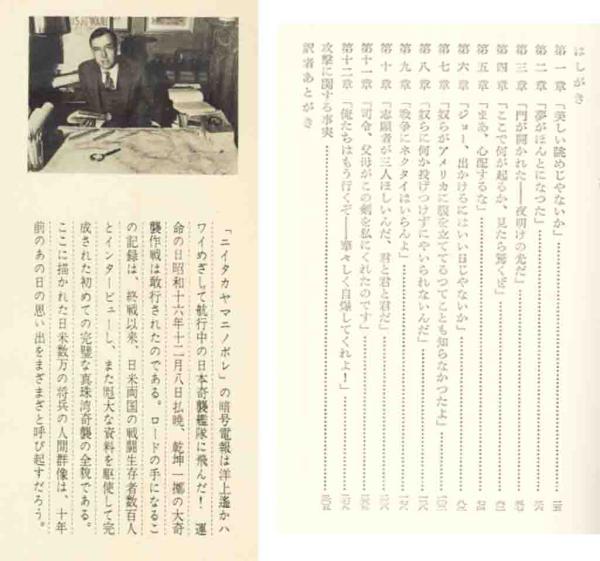 「ニイタカヤマニノボレ」の暗号電報は洋上遙かハ
ワイめざして航行中の日本奇襲艦隊に飛んだ！　運
命の日昭和十六年十二月八日払暁、乾坤一擲の大奇
襲作戦は敢行されたのである。ロードの手になるこ
の記録は、終戦以来、日米両国の戦闘生存者数百人
とインタービューし、また厖大な資料を駆使して完
成された初めての完璧な真珠湾奇襲の全貌である。
ここに描かれた日米数万の将兵の人間群像は、十年
前のあの日の思い出をまざまざと呼び起すだろう。
はしがき
第一章「美しい眺めじやないか」
第二章「夢がほんとになつた」
第三章「門が開かれた――夜明けの光だ」
第四章「ここで何が起るか、見たら驚くぜ」
第五章「まあ、心配するな」
第六章「ジョー、出かけるにはいい日じやないか」
第七章「奴らがアメリカに腹を立ててるつてことも知らなかつたよ」
第八章「奴らに何か投げつけずにやいられないんだ」
第九章「戦争にネクタイはいらんよ」
第十章「志願者が三人ほしいんだ、君と君と君だ」
第十一章「司令、父母がこの剣を私にくれたのです」
第十二章「俺たちはもう行くぞ――華々しく自爆してくれよ！」
攻撃に関する事実
訳者あとがき